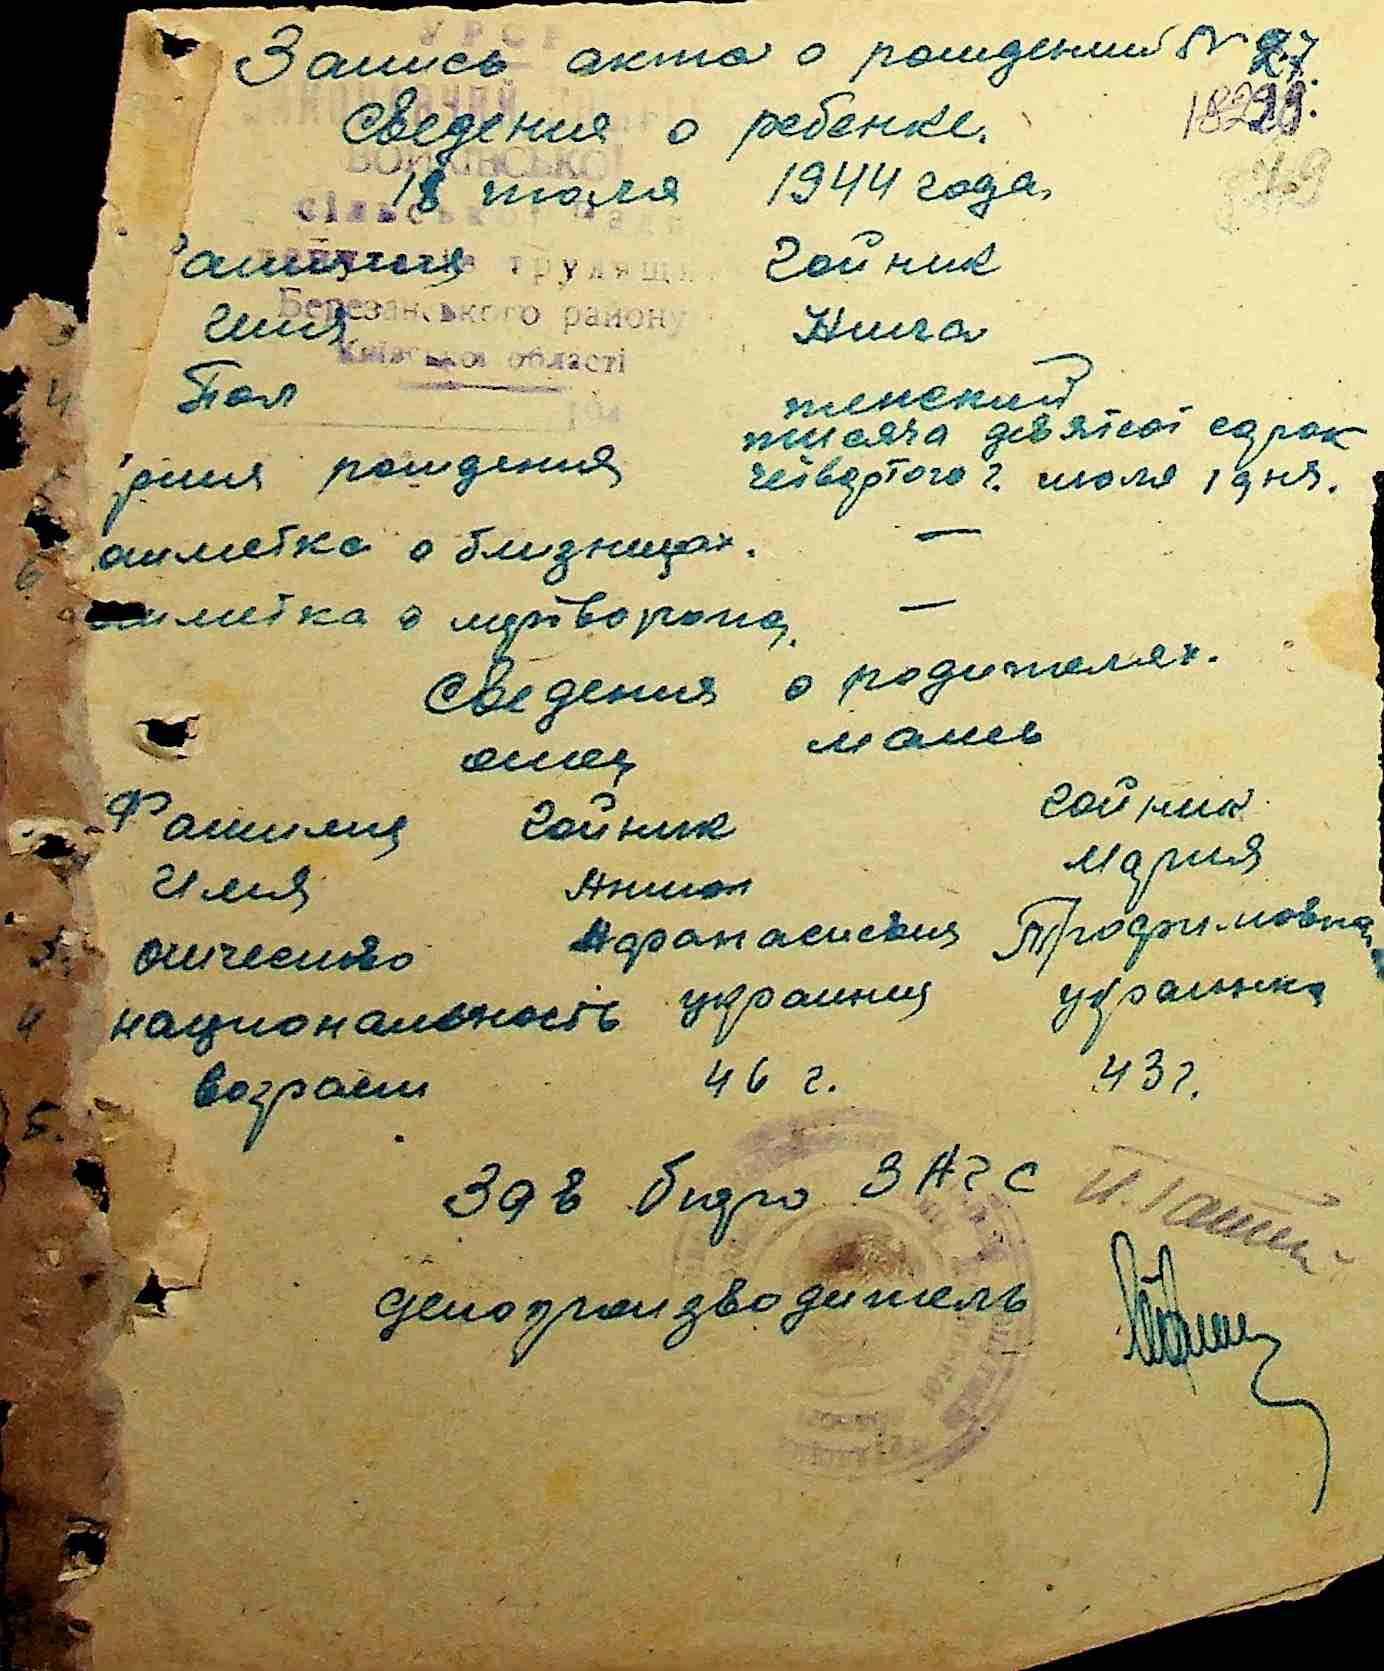 УРСР
Запись акта о рождении № 27.
Сведения о ребенке.
18 июля 1944 года.
сільської ради
Березанського району
Київської області
194
Фамилия Гойник
3 Имя Нина
4 Пол женский
5 время рождения тысяча девятсот сорок
четвертого г. июля 1 дня.
6 отметка о близнецах. —
отметка о мертворожд. —
Сведения о родителях.
отец мать
Фамилия Гойник Гойник
Имя Антон Мария
3. отчество Афанасиевич Трофимовна
4 национальность украинец украинка
5. возраст 46 г. 43 г.
Зав бюро ЗАГС
делопроизводитель